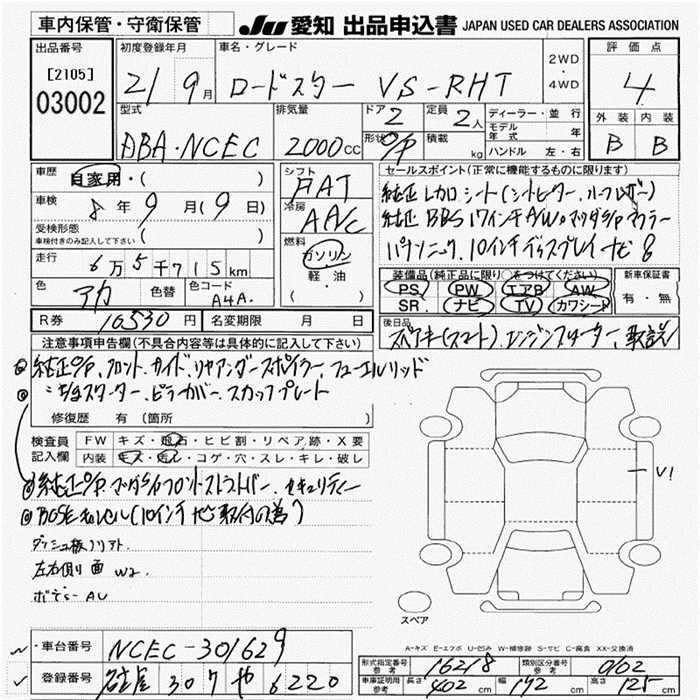 車内保管・守衛保管 JU 愛知 出品申込書 JAPAN USED CAR DEALERS ASSOCIATION
出品番号 初度登録年月 車名・グレード 評価点
[2105] 21 9月 ロードスター VS-RHT 2WD・4WD 4
03002 型式 排気量 ドア 2 定員 2人 ディーラー・並行 外装 内装
ABA・NCEC 2000CC 形状 O/P 積載 kg モデル年式 年 B B
ハンドル 左・右
車歴 自家用・( ) シフト FAT セールスポイント(正常に機能するものに限ります)
車検 8年 9月(9日) 冷房 AAC 純正レカロシート(シートヒーター、ハーフレザー)
受検形態 ( ) 純正BBS17インチAW マツダSPマフラー
車検付きのみ記入して下さい 燃料 パナソニック、10インチディスプレイナビ
走行 6万5千715km ガソリン 装備品(純正品に限り○をつけてください) 新車保証書
軽・油 PS PW エアB AW 有・無
色 アカ 色替 色コード A4A. SR ナビ TV カワシート
R券 16530円 名変期限 月 日 後日品 スペアキー(スマート)、エンジンスターター、取説
注意事項申告欄(不具合内容等は具体的に記入して下さい)
純正OP、フロント、サイド、リヤアンダースポイラー、フューエルリッド
スターター、ピラーカバー、スカッフプレート
修復歴 有(箇所 )
検査員 FW キズ・飛石・ヒビ割・リペア跡・X要
記入欄 内装 キズ・汚レ・コゲ・穴・スレ・キレ・破レ
純正OP、マツダSPフロントストラットバー、セキュリティー
V1
BOSEキャンセル(10インチナビ取付の為)
左右側面 W2.
スペア
A-キズ E-エクボ U-凹み W-補修跡 S-サビ C-腐食 XX-交換済
車台番号 NCEC-301629 形式指定番号 参考 16218 類別区分番号 参考 0102
登録番号 名古屋 307 や 6220 車庫証明用 参考 長さ 402cm 幅 172cm 高さ 125cm